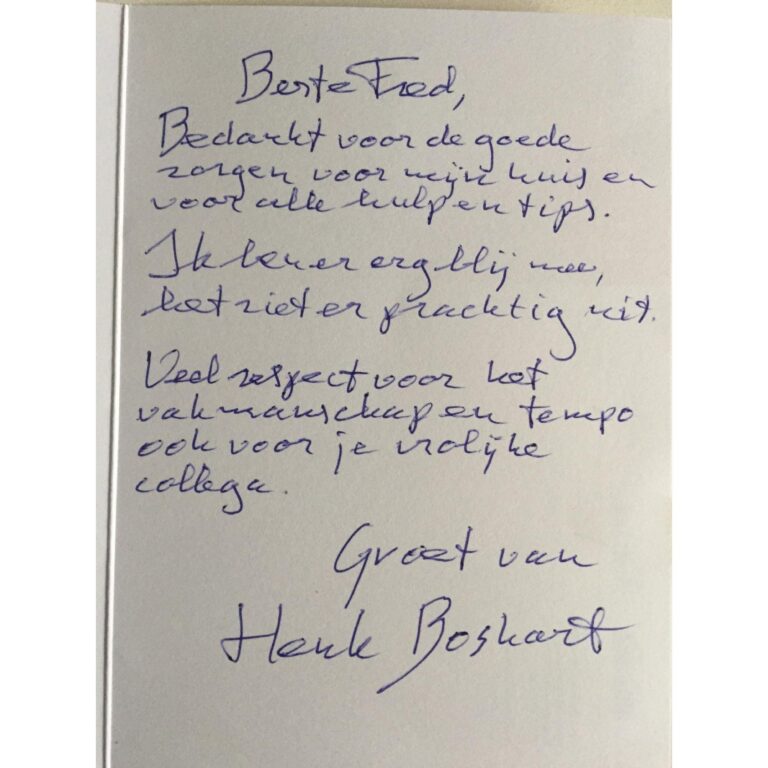 Beste Fred,
Bedankt voor de goede
zorgen voor mijn huis en
voor alle hulp en tips.
Ik ben er erg blij mee,
het ziet er prachtig uit.
Veel respect voor het
vakmanschap en tempo
ook voor je vrolijke
collega.
Groet van
Henk Boskart